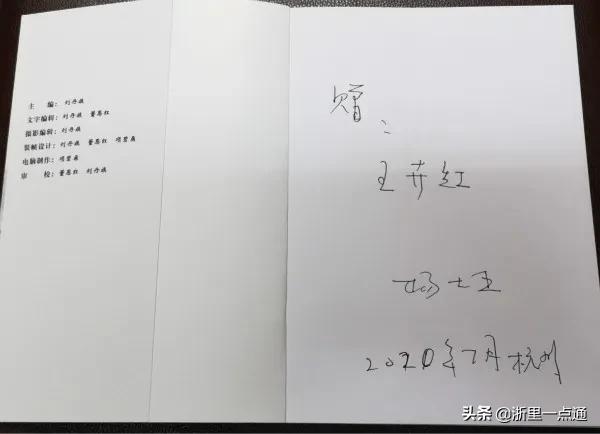 主　　编：刘丹旗
文字编辑：刘丹旗　董恩红
摄影编辑：刘丹旗
装帧设计：刘丹旗　董恩红　项碧燕
电脑制作：项碧燕
审　　校：董恩红　刘丹旗
赠：
王卉红
杨士玉
2020年7月 杭州
头条 @浙里一点通